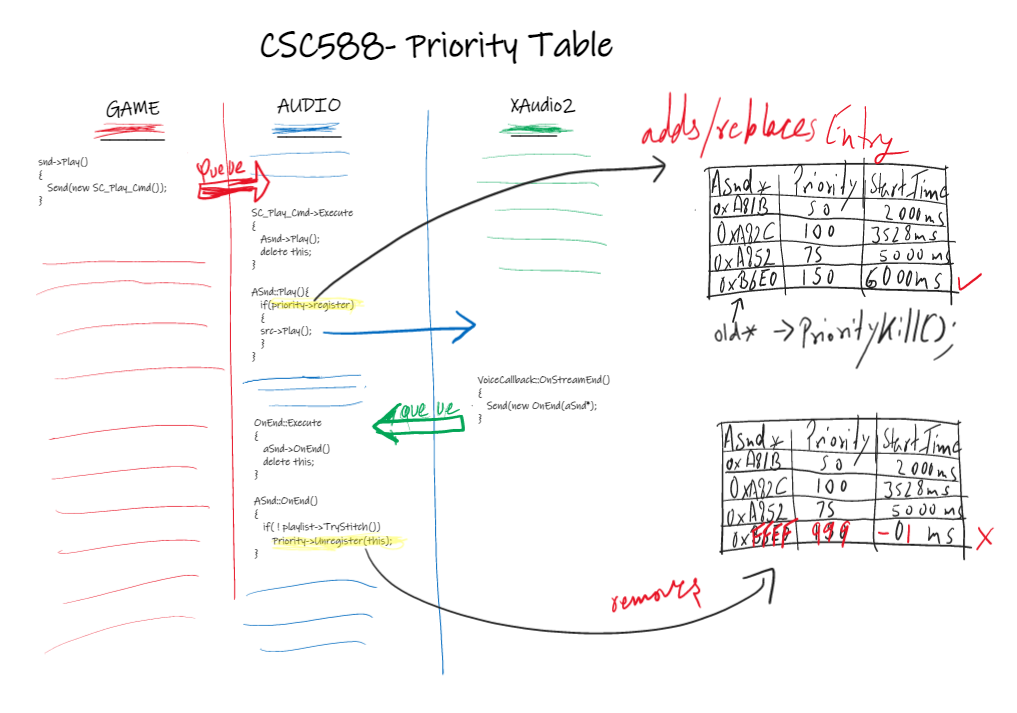 CSC588- Priority Table
GAME
snd->Play()
{
Send(new SC_Play_Cmd());
}
Queue
AUDIO
SC_Play_Cmd->Execute
{
Asnd->Play();
delete this;
}
ASnd::Play(){
if(priority->register)
{
src->Play();
}
}
OnEnd::Execute
{
aSnd->OnEnd()
delete this;
}
ASnd::OnEnd()
{
if( ! playlist->TryStitch())
Priority->Unregister(this);
}
XAudio2
VoiceCallback::OnStreamEnd()
{
Send(new OnEnd(aSnd*);
}
queue
adds/replaces Entry
Asnd* Priority StartTime
0xA81B 50 2000ms
0xA82C 100 3528ms
0xA852 75 5000ms
0xB6E0 150 6000ms
old* -> PriorityKill();
Asnd* Priority StartTime
0xA81B 50 2000ms
0xA82C 100 3528ms
0xA852 75 5000ms
999 -01 ms X
removes